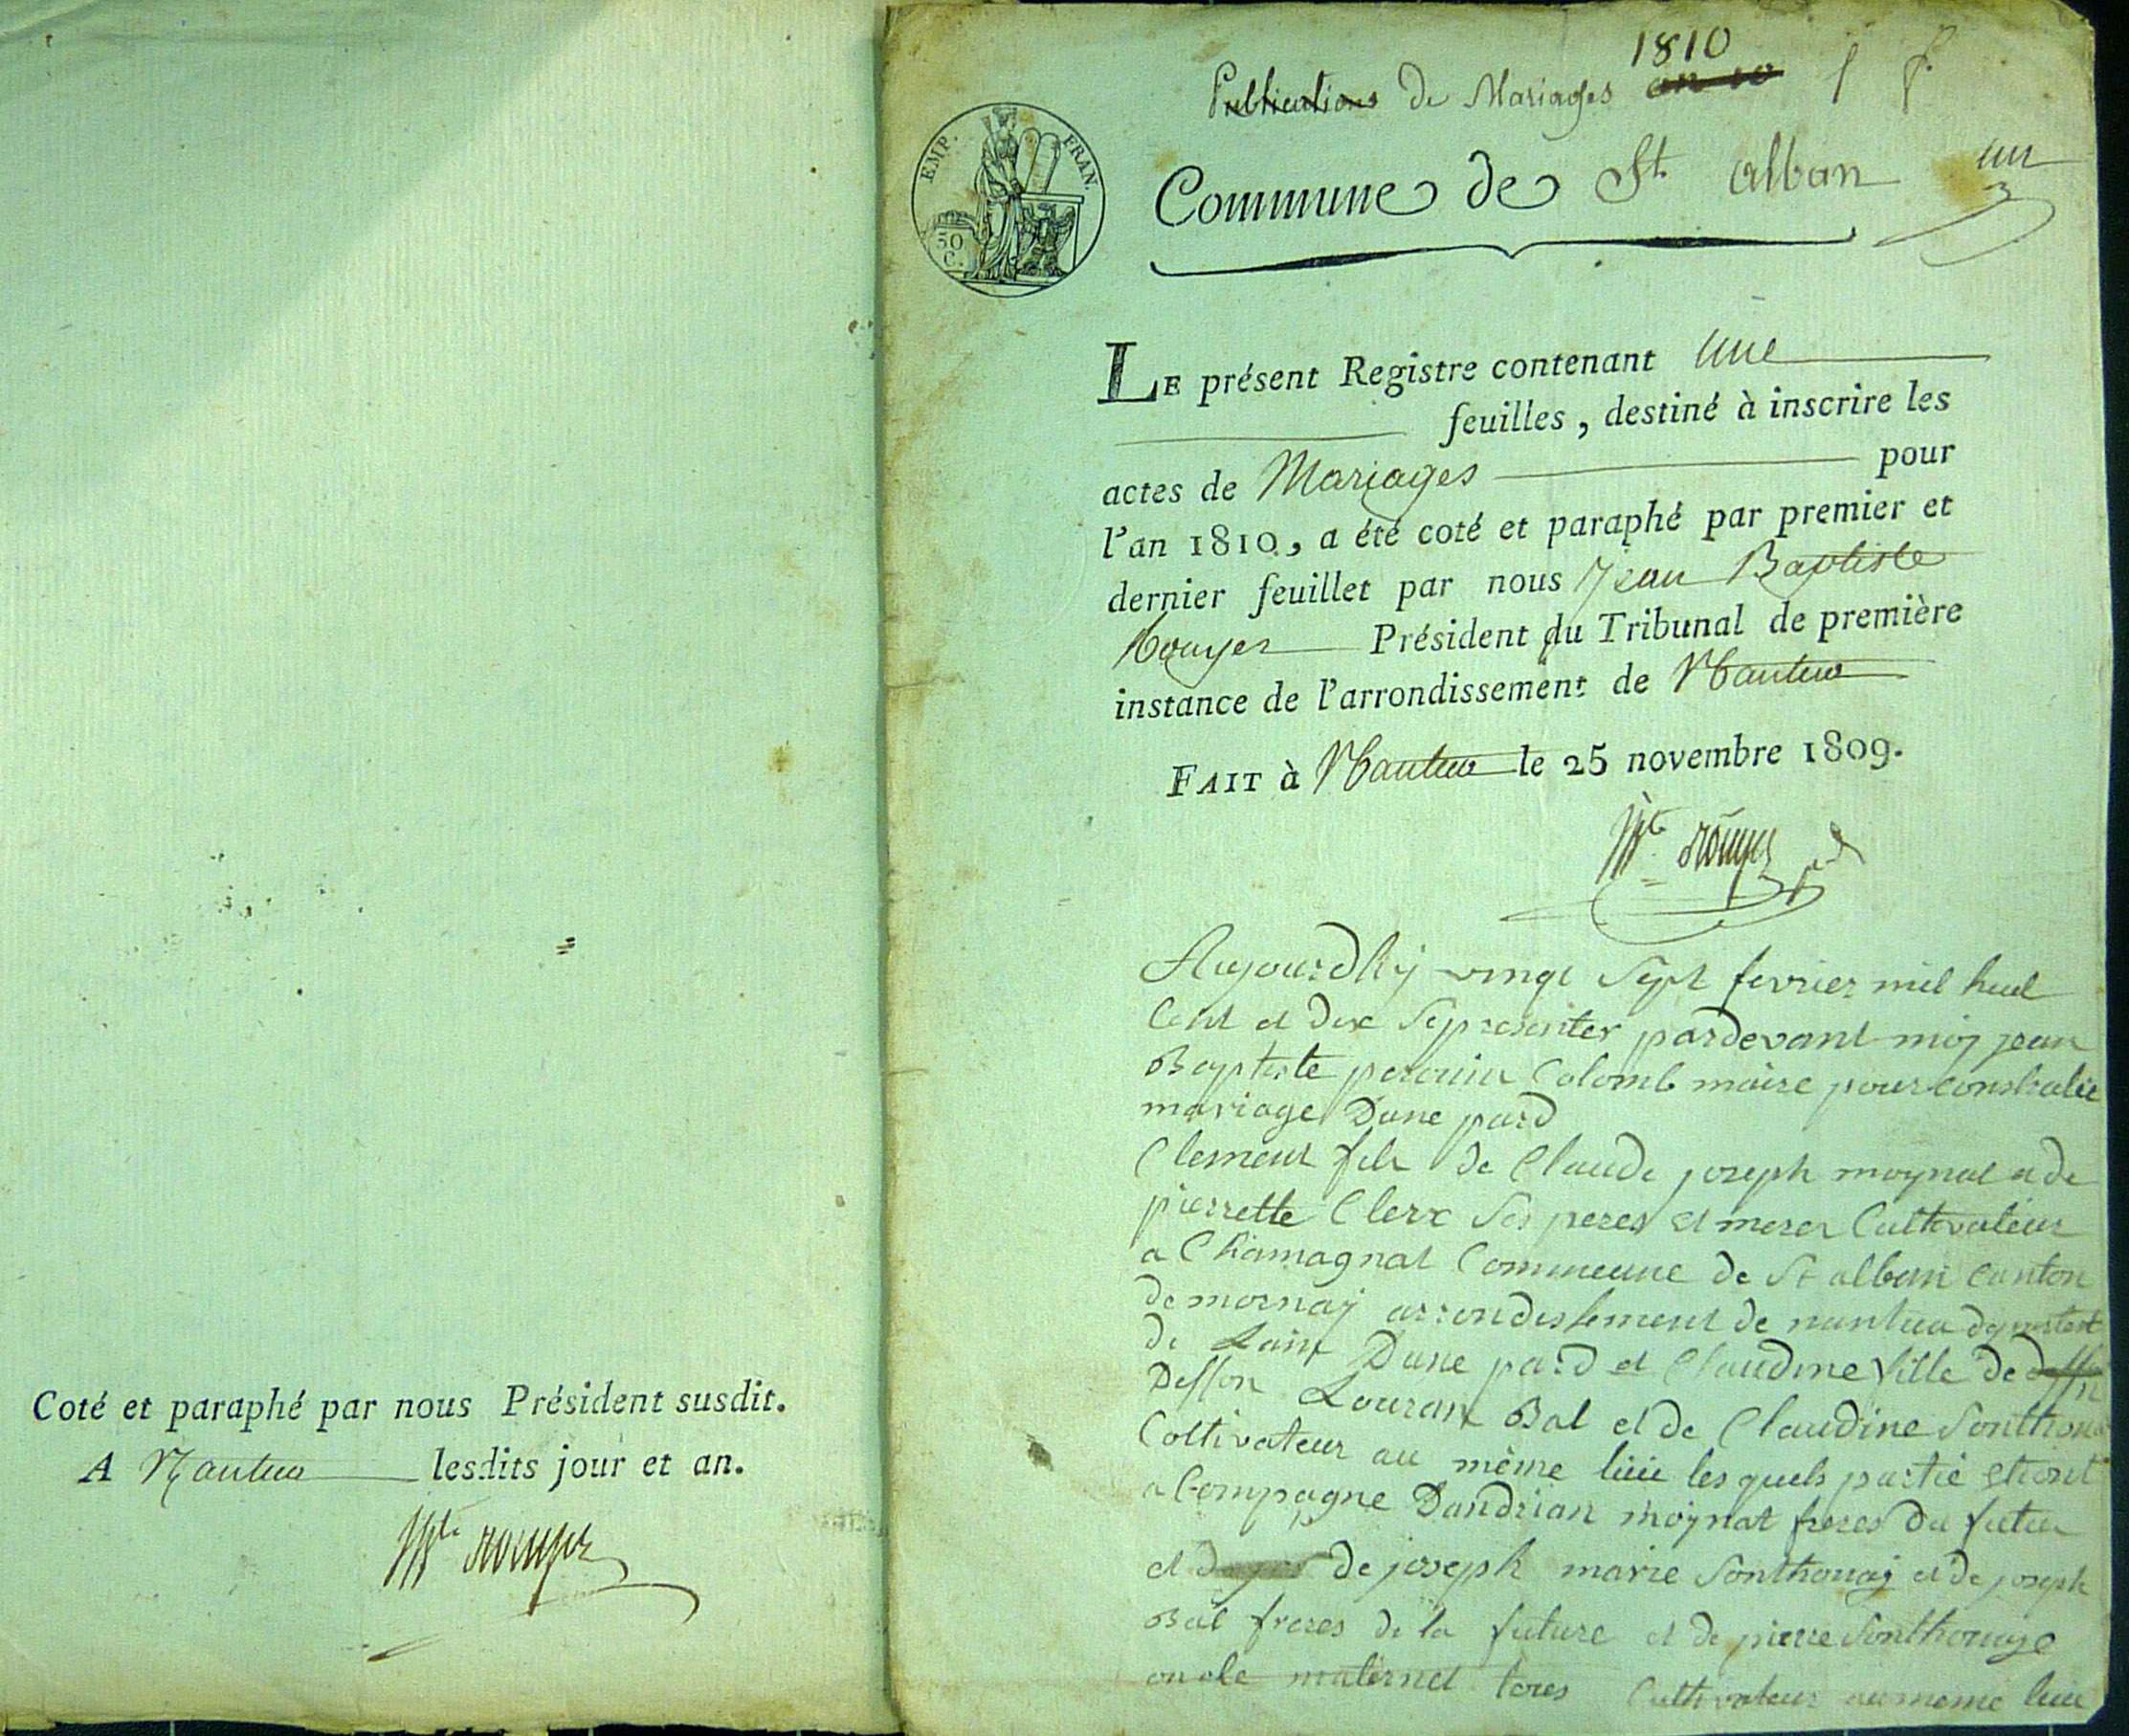 Coté et paraphé par nous Président susdit.
A Nantua lesdits jour et an.
1810
Publications de Mariages an 10
EMP. FRAN.
30
C.
Commune de St alban
un
LE présent Registre contenant une
feuilles, destiné à inscrire les
actes de Mariages pour
l'an 1810, a été coté et paraphé par premier et
dernier feuillet par nous Jean Baptiste
Rouyer Président du Tribunal de première
instance de l'arrondissement de Nantua
FAIT à Nantua le 25 novembre 1809.
Aujourdhÿ vingt Sept fevrier mil huit
Cent et dix Sepresenter pardevant moy jean
Baptiste Colomb maire pour
mariage Dune pard
Clement fils de Claude joseph moynat et de
pierrette Clerc Ses peres et meres Cultivateur
a Chamagnat Commeune de St alban canton
de mornaÿ arrondissement de nantua
de Lain Dune pard et Claudine fille de
Deffon Louran Bal et de Claudine
Coltivateur au même liüe les quels partie
a Compagne Dandrian moÿnat freres du futur
et de joseph marie Sonthonaÿ et de joseph
Bal freres de la future et de pierre Sonthonaye
oncle maternel Cultivateur au meme liüe